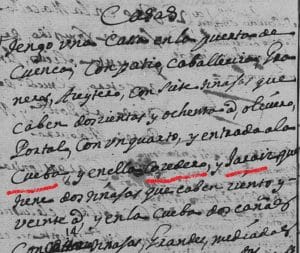 Casas
Tengo una Casa en la puerta de
Cuenca, Con patio, Caballeriza, Gra
nero, con siete tinajas que
caben docientas y ochenta @,
Portal, Con un quarto, y entrada a la
Cueba, y en ella, y Jaraiz que
tiene dos tinajas que caben ciento y
veinte @ y en la Cueba dos cañas
Con tinajas, Grandes, mediadas